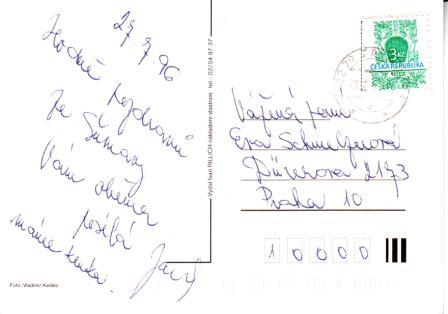 27.7.96
Hodně
pozdravů
ze Šumavy
Vám oběma
posílá
Vydal Ivan RILLICH nákladem vlastním tel.: 02/54 97 37
3 Kč
ČESKÁ REPUBLIKA
Vážená paní
Eva
2173
Praha 10
1 0 0 0 0
Foto: Vladimír Kadlec